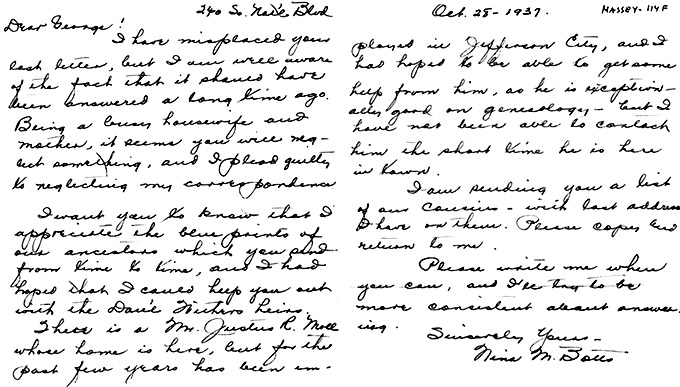 240 So. Nat'l Blvd
Dear George!
I have misplaced your
last letter, but I am well aware
of the fact that it should have
been answered a long time ago.
Being a busy housewife and
mother, it seems you will neg-
lect something, and I plead guilty
to neglecting my correspondence
I want you to know that I
appreciate the blue prints of
our ancestors which you send
from time to time, and I had
hoped that I could help you out
with the Dav'e Withers heirs.
There is a Mr. Justus R. Moll
whose home is here, but for the
past few years has been em-
Oct. 28 - 1937.
MASSEY-114F
ployed in Jefferson City, and I
had hoped to be able to get some
help from him, as he is exception-
ally good on geneology - but I
have not been able to contact
him the short time he is here
in town.
I am sending you a list
of our cousins - with last address
I have on them. Please copy and
return to me.
Please write me when
you can, and I'll try to be
more consistent about answer-
ing.
Sincerely Yours -
Nina M. Botts